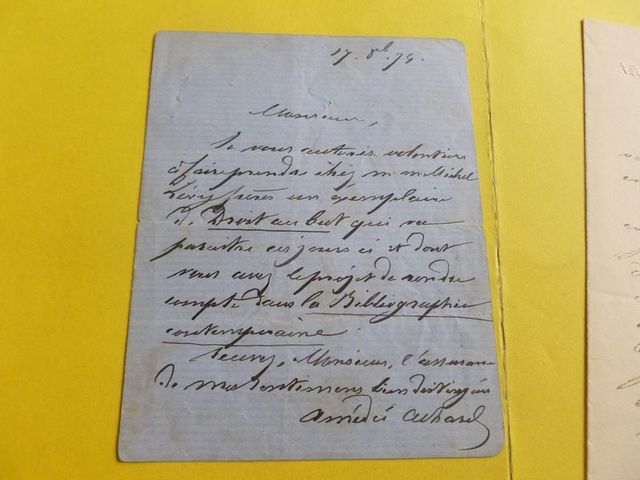 17. 8b. 74.
Monsieur,
Je vous autorise volontiers
à faire prendre chez M. M. Michel
Lévy frères un exemplaire
de Droit au but qui va
paraitre ces jours ci et dont
vous avez le projet de rendre
compte dans la Bibliographie
contemporaine
Recevez, Monsieur, l'assurance
de mes sentimens bien distingués
Amédée Achard